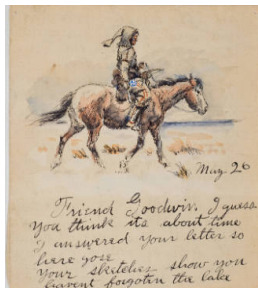 May 26
Friend Goodwin. I guess
you think its about time
I answered your letter so
here gose
Your sketches show you
havent forgotten the lake